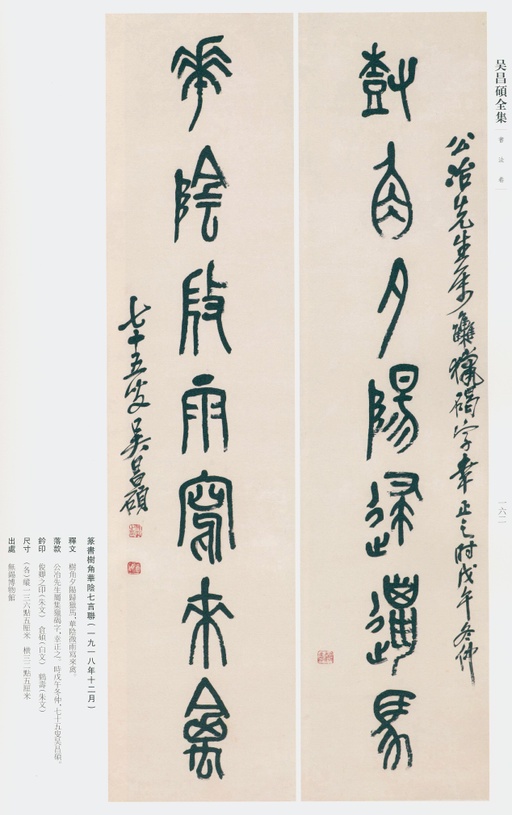 吴昌碩全集
書法卷
一六二
公冶先生屬集獵碣字幸正之時戊午冬仲
𣗳角夕陽歸獵馬
華陰殷雨寫來禽
七十五叟吳昌碩
篆書樹角華陰七言聯(一九一八年十二月)
釋文 樹角夕陽歸獵馬,華陰殷雨寫來禽。
落款 公冶先生屬集獵碣字,幸正之。時戊午冬仲,七十五叟吳昌碩。
鈐印 俊卿之印(朱文) 倉碩(白文) 鶴壽(朱文)
尺寸 (各)縱一三六點五厘米 橫三二點五厘米
出處 無錫博物館